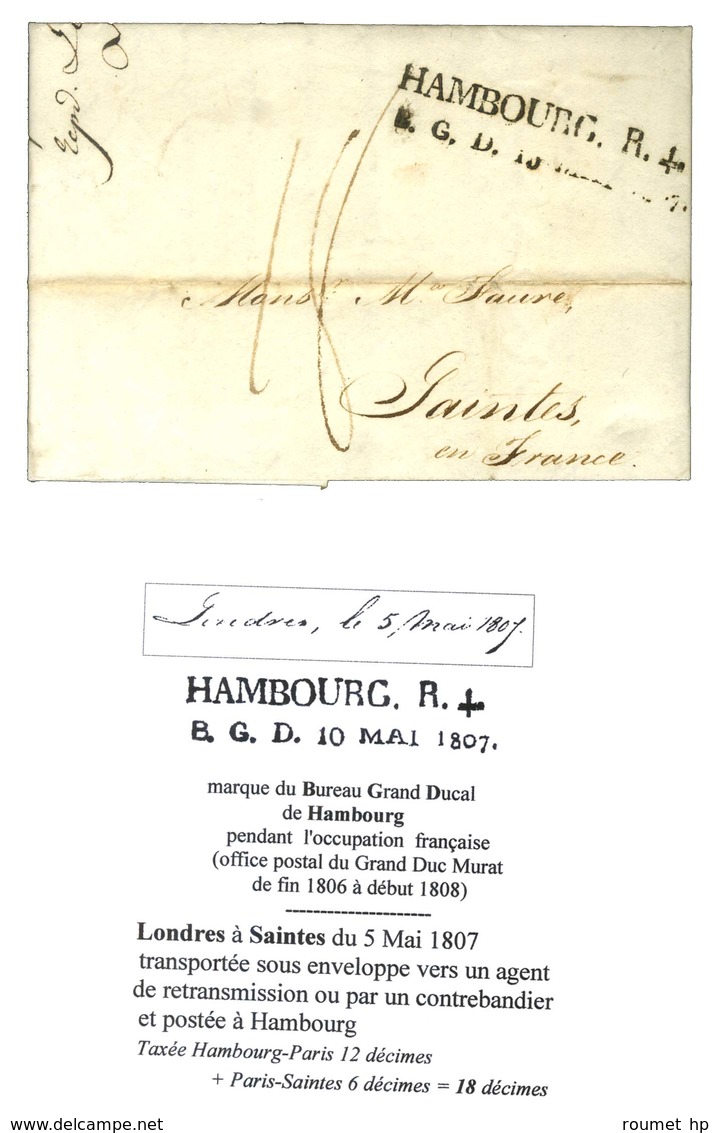 Repd.
HAMBOURG. R. 4.
B. G. D. 10 MAI 1807.
18
Monsr. Mce Faure,
Saintes,
en France.
Londres, le 5, Mai 1807.
HAMBOURG. R. 4.
B. G. D. 10 MAI 1807.
marque du Bureau Grand Ducal
de Hambourg
pendant l'occupation française
(office postal du Grand Duc Murat
de fin 1806 à début 1808)
----------------------
Londres à Saintes du 5 Mai 1807
transportée sous enveloppe vers un agent
de retransmission ou par un contrebandier
et postée à Hambourg
Taxée Hambourg-Paris 12 décimes
+ Paris-Saintes 6 décimes = 18 décimes
www.delcampe.net
roumet hp